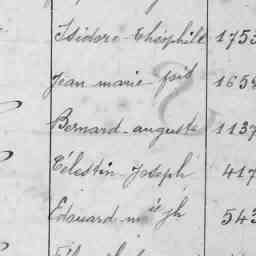 Isidore Théophile 1753
Jean marie fois 1659
Bernard auguste 1137
Célestin Joseph 417
Edouard m is jh 543